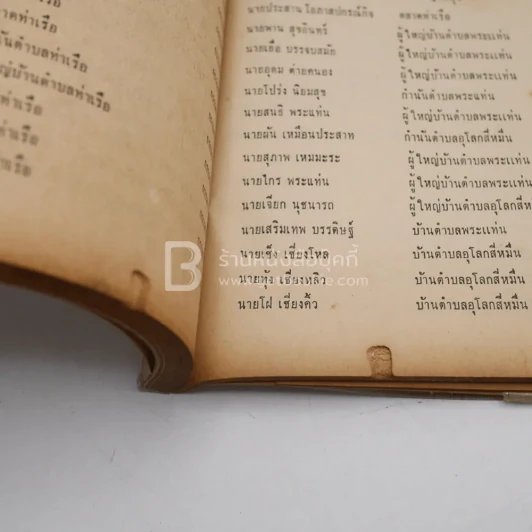 ตลาดท่าเรือ
กำนันตำบลท่าเรือ
ผู้ใหญ่บ้านตำบลท่าเรือ
ท่าเรือ
ท่าเรือ
เรือ
นายประสาน โอภาสปกรณ์กิจ ตลาดท่าเรือ
นายพาน สุขอินทร์ ผู้ใหญ่บ้านตำบลพระแท่น
นายเยื่อ บรรจบสมัย ผู้ใหญ่บ้านตำบลพระแท่น
นายอุดม ค่ายคนอง ผู้ใหญ่บ้านตำบลพระแท่น
นายโปร่ง นิยมสุข กำนันตำบลพระแท่น
นายสนธิ พระแท่น ผู้ใหญ่บ้านตำบลพระแท่น
นายผัน เหมือนประสาท กำนันตำบลอุโลกสี่หมื่น
นายสุภาพ เหมมะระ ผู้ใหญ่บ้านตำบลพระแท่น
นายไกร พระแท่น ผู้ใหญ่บ้านตำบลพระแท่น
นายเจียก นุชนารถ ผู้ใหญ่บ้านตำบลอุโลกสี่ห
นายเสริมเทพ บรรดิษฐ์ บ้านตำบลพระแท่น
นายเซ็ง เซี่ยงโหล บ้านตำบลอุโลกสี่หมื่น
เซี่ยงหลิว บ้านตำบลอุโลกสี่หมื่น
นายโฝ เซี่ยงคิ้ว บ้านตำบลอุโลกสี่หมื่น
B ร้านหนังสือบุคกี้